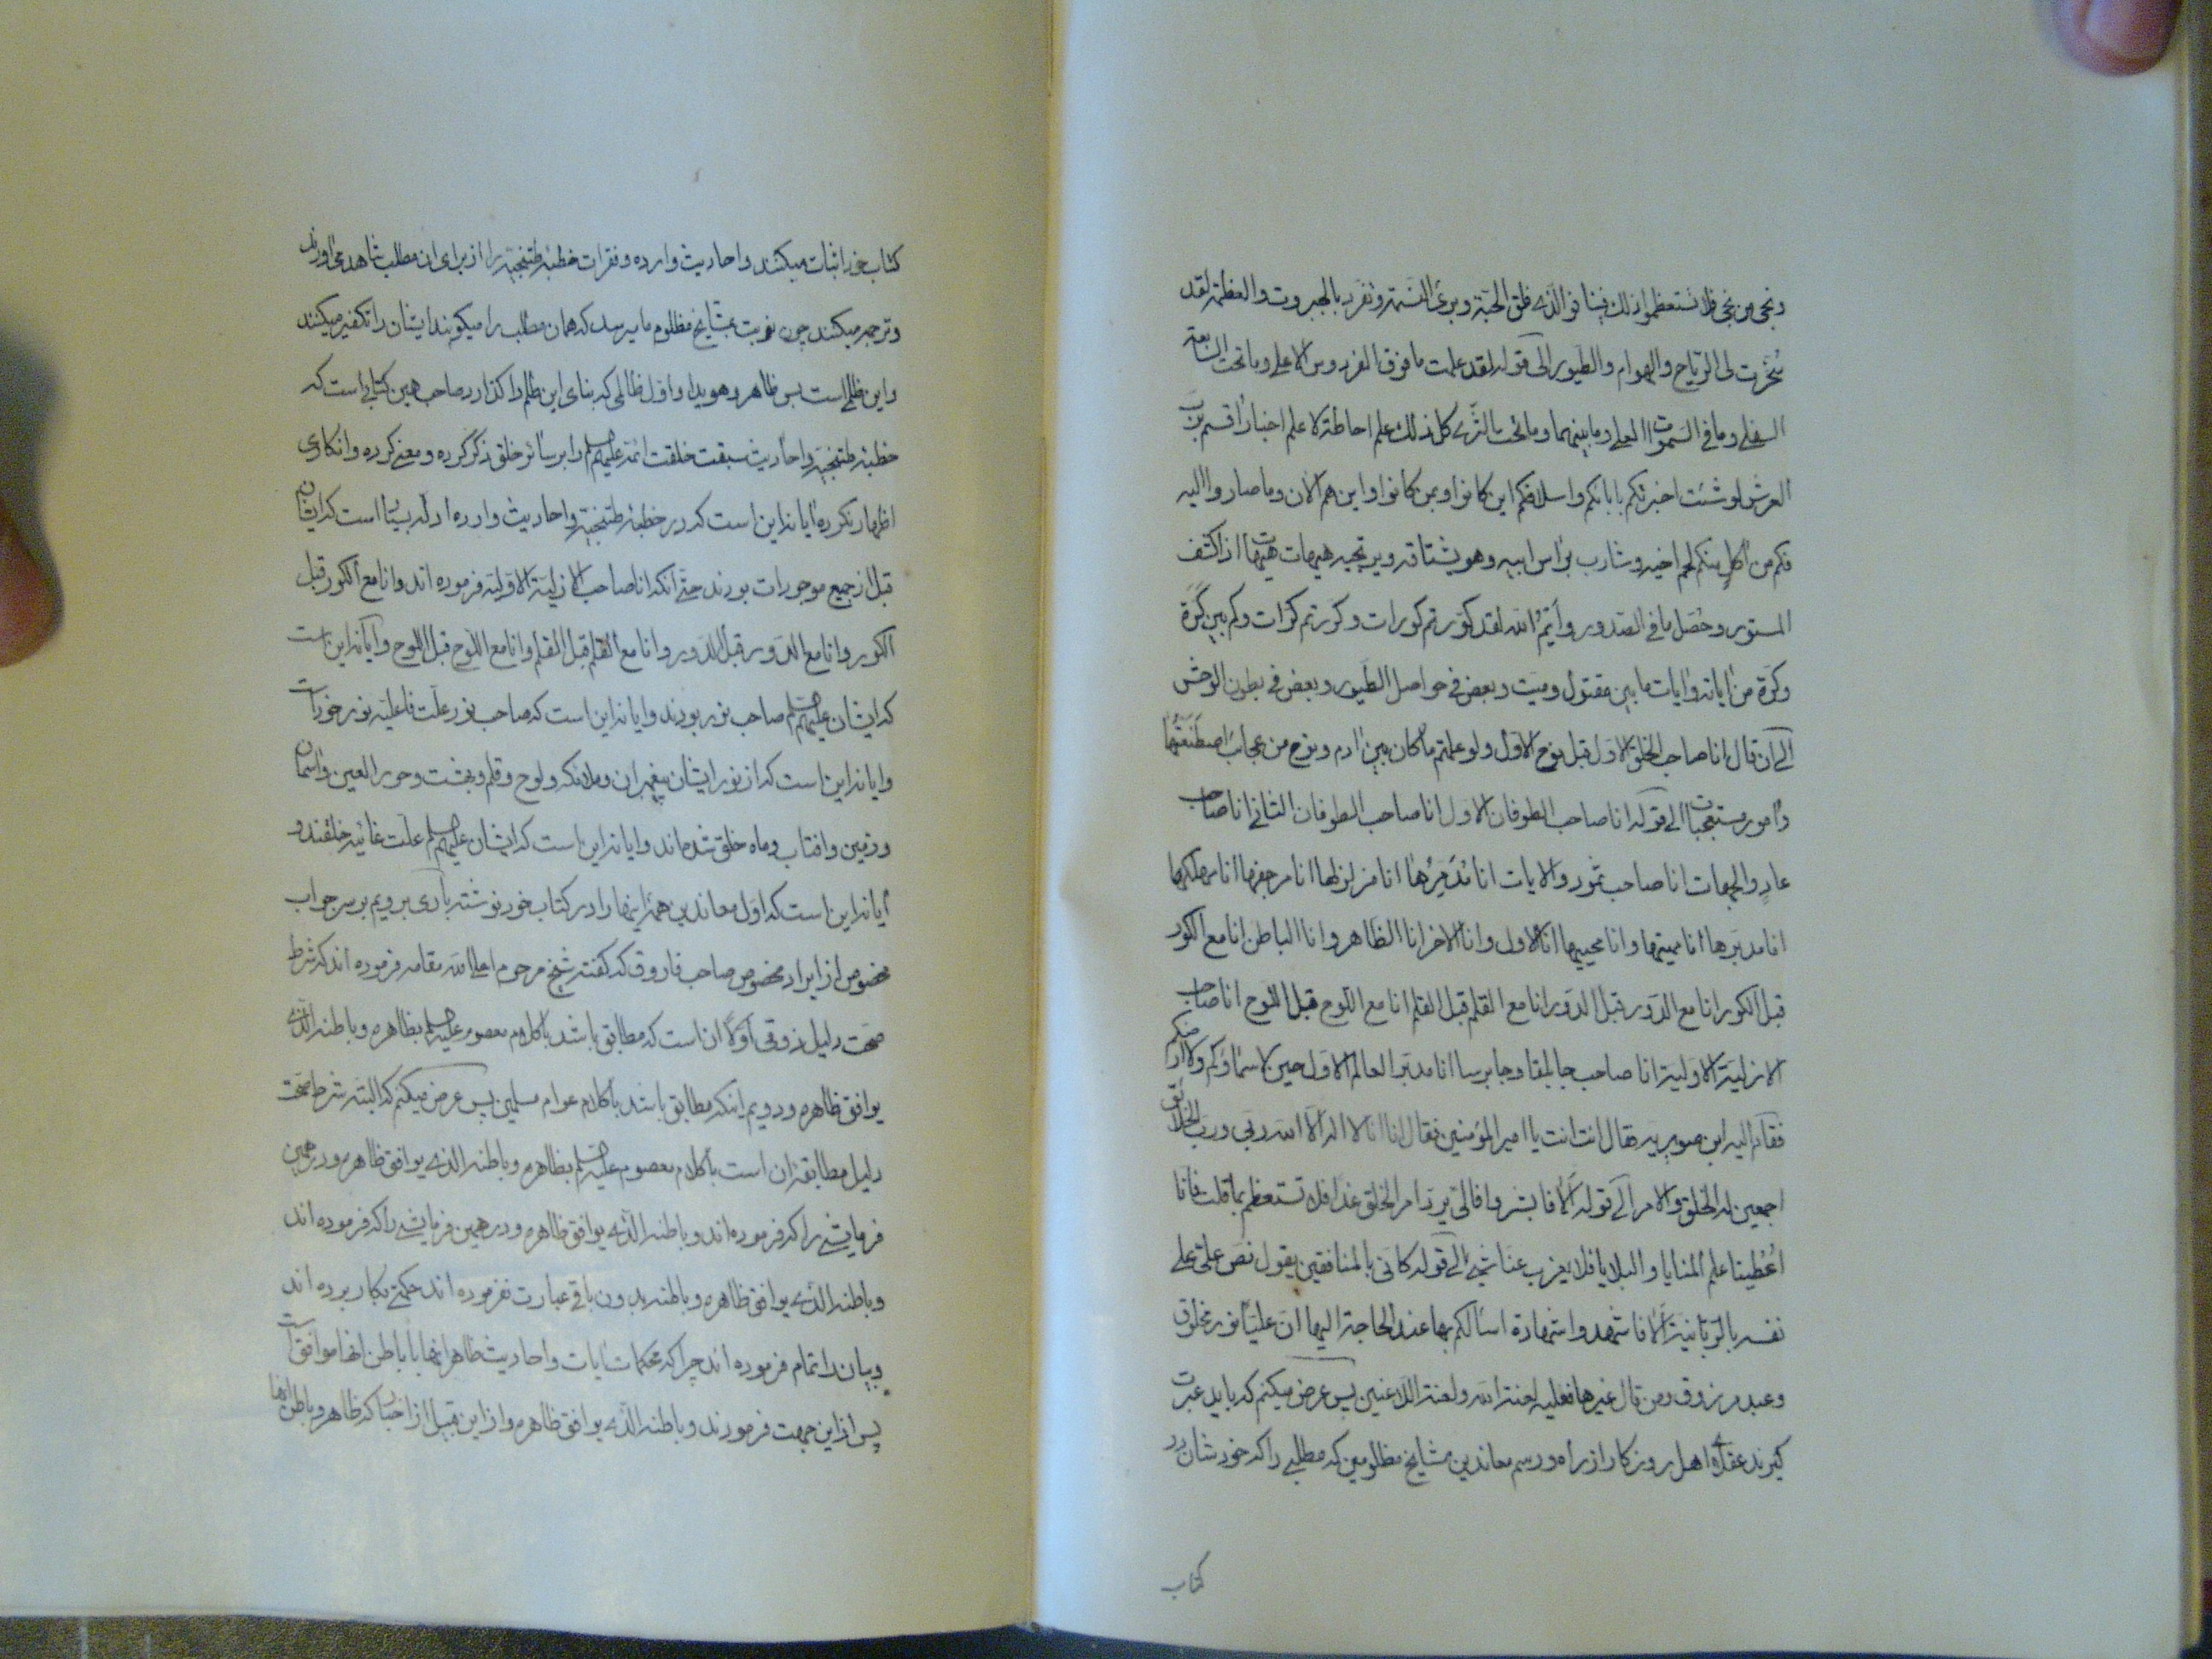 ونجی من نجی فلا تستعظموا ذلک فینا فوالذی فلق الحبة وبرئ النسمة وتفرد بالجبروت والعظمة لقد
سخرت لی الریاح والهوام والطیور الی قوله لقد علمت ما فوق الفردوس الاعلی وما تحت السابعة
السفلی وما فی السموات العلی وما بینهما وما تحت الثری کل ذلک علم احاطة لا علم اخبار اقسم برب
العرش لو شئت اخبرتکم بابائکم واسلافکم این کانوا وممن کانوا واین هم الان وما صاروا الیه
فکم من اکل منکم لحم اخیه وشارب براس ابیه وهو یشتاقه ویرتجیه هیهات هیهات اذا کشف
المستور وحصل ما فی الصدور وایم الله لقد کورتم کورات وکررتم کرات وکم بین کرة
وکرة من ایة وایات ما بین مقتول ومیت وبعض فی حواصل الطیور وبعض فی بطون الوحش
الی ان قال انا صاحب الخلق الاول قبل نوح الاول ولو علمتم ما کان بین ادم ونوح من عجائب اصطنعتها
وامور مستعجبات الی قوله انا صاحب الطوفان الاول انا صاحب الطوفان الثانی انا صاحب
عاد والجنات انا صاحب ثمود والایات انا مدمرها انا مزلزلها انا مرجفها انا مهلکها
انا مدبرها انا ممیتها وانا محییها انا الاول وانا الاخر انا الظاهر وانا الباطن انا مع الکور
قبل الکور انا مع الدور قبل الدور انا مع القلم قبل القلم انا مع اللوح قبل اللوح انا صاحب
الازلیة الاولیة انا صاحب جابلقا وجابرسا انا مدبر العالم الاول حین لا سماؤکم ولا ارضکم
فقام الیه ابن صویریه فقال انت انت یا امیر المؤمنین فقال انا انا لا اله الا الله ربی ورب الخلائق
اجمعین له الخلق والامر الی قوله الا فابشروا فالی یرد امر الخلق غدا فلا تستعظم بما قلت فانا
اعطینا علم المنایا والبلایا فلا یعزب عنا شیء الی قوله کانی بالمنافقین یقول نص علی علی
نفسه بالربانیة الا فاشهدوا شهادة اسالکم بها عند الحاجة الیها ان علیا نور مخلوق
وعبد مرزوق ومن قال غیرها فعلیه لعنة الله ولعنة اللاعنین پس عرض میکنم که باید عبرت
گیرند عقلای اهل روزکار از راه ورسم معاندین مشایخ مظلومین که مطلبی را که خودشان در
کتاب
کتاب خود اثبات میکنند واحادیث وارده وفقرات خطبهٔ طتنجیّه را از برای ان مطلب شاهد می اورند
وترجمه میکنند چون نوبت بمشایخ مظلوم ما میرسد که همان مطلب را میکویند ایشان را تکفیر میکنند
واین ظلمی است بس ظاهر وهویدا واول ظالمی که بنای این ظلم را کذارد صاحب همین کتابی است که
خطبهٔ طتنجیه واحادیث سبقت خلقت ائمه علیهم السلم را بر سائر خلق ذکر کرده ومعنی کرده وانکاری
اظهار نکرده ایا نه این است که در خطبهٔ طتنجیه واحادیث وارده ادله بسیار است که ایشان
قبل از جمیع موجودات بودند حتی انکه انا صاحب الازلیة الاولیة فرموده اند وانا مع الکور قبل
الکور وانا مع الدور قبل الدور وانا مع القلم قبل القلم وانا مع اللوح قبل اللوح وایا نه این است
که ایشان علیهم السلم صاحب نور بودند وایا نه این است که صاحب نور علت فاعلیه نور خود است
وایا نه این است که از نور ایشان پیغمبران وملائکه ولوح وقلم وبهشت وحور العین واسمان
وزمین وافتاب وماه خلق شده اند وایا نه این است که ایشان علیهم السلم علت غائیه خلقند و
ایا نه این است که اول معاندین همه اینها را در کتاب خود نوشته باری برویم بر سر جواب
مخصوص از ایراد مخصوص صاحب فاروق که کفته شیخ مرحوم اعلی الله مقامه فرموده اند که شرط
صحت دلیل ذوقی اولا ان است که مطابق باشد با کلام معصوم علیه السلم بظاهره وباطنه الذی
یوافق ظاهره ودویم اینکه مطابق باشد با کلام عوام مسلمین پس عرض میکنم که البته شرط صحت
دلیل مطابقهٔ ان است با کلام معصوم علیه السلم بظاهره وباطنه الذی یوافق ظاهره ودر همین
فرمایشی را که فرموده اند وباطنه الذی یوافق ظاهره ودر همین فرمایشی را که فرموده اند
وباطنه الذی یوافق ظاهره وباطنه بدون باقی عبارت نفرموده اند حکمتی بکار برده اند
وبیان را تمام فرموده اند چرا که محکمات ایات واحادیث ظاهر انها با باطن انها موافق است
پس از این جهت فرمودند وباطنه الذی یوافق ظاهره واز این قبیل از اخبار که ظاهر وباطن انها